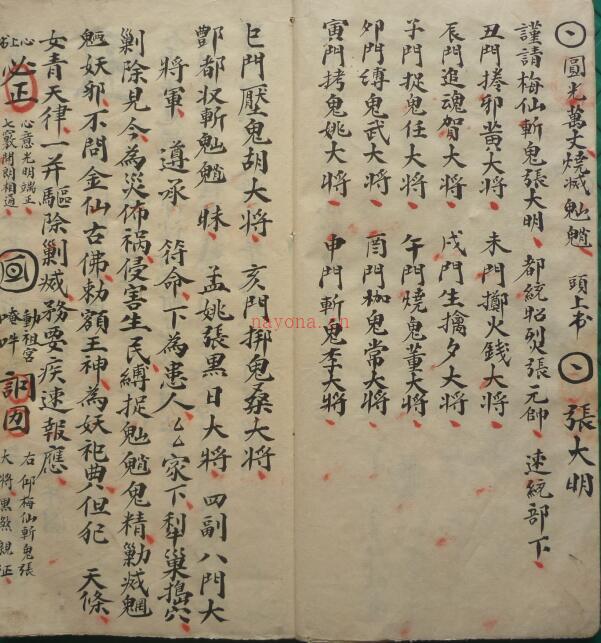 圓光萬丈燒滅魈 頭上书 張大明
謹請梅仙斬鬼張大明、都統昭烈張元帥、速統部下、
丑門捲邪黄大将、未門擲火錢大将、
辰門追魂賀大将、戌門生擒夕大将、
子門捉鬼任大将、午門燒鬼董大将、
夘門縛鬼武大将、酉門枷鬼常大将、
寅門拷鬼姚大将、申門斬鬼李大将、
巳門壓鬼胡大将、亥門掤鬼桑大将、
酆都収斬魈 昧、孟姚張黑日大将、四副八門大
将軍、遵承 符命、下為患人厶厶家下、犁巢搗穴
剿除見今為災佈禍、侵害生民、縛捉魈鬼精、勦滅魍
魎妖邪、不問金仙古佛、勅額王神、為妖祀典、但犯 天條、
女青天律、一并驅除剿滅、務要疾速報應、
心上书 必正 心意光明端正、
七竅開朗相通、
動祖宮
右仰梅仙斬鬼張
大将黑煞親征、
nayona.cn